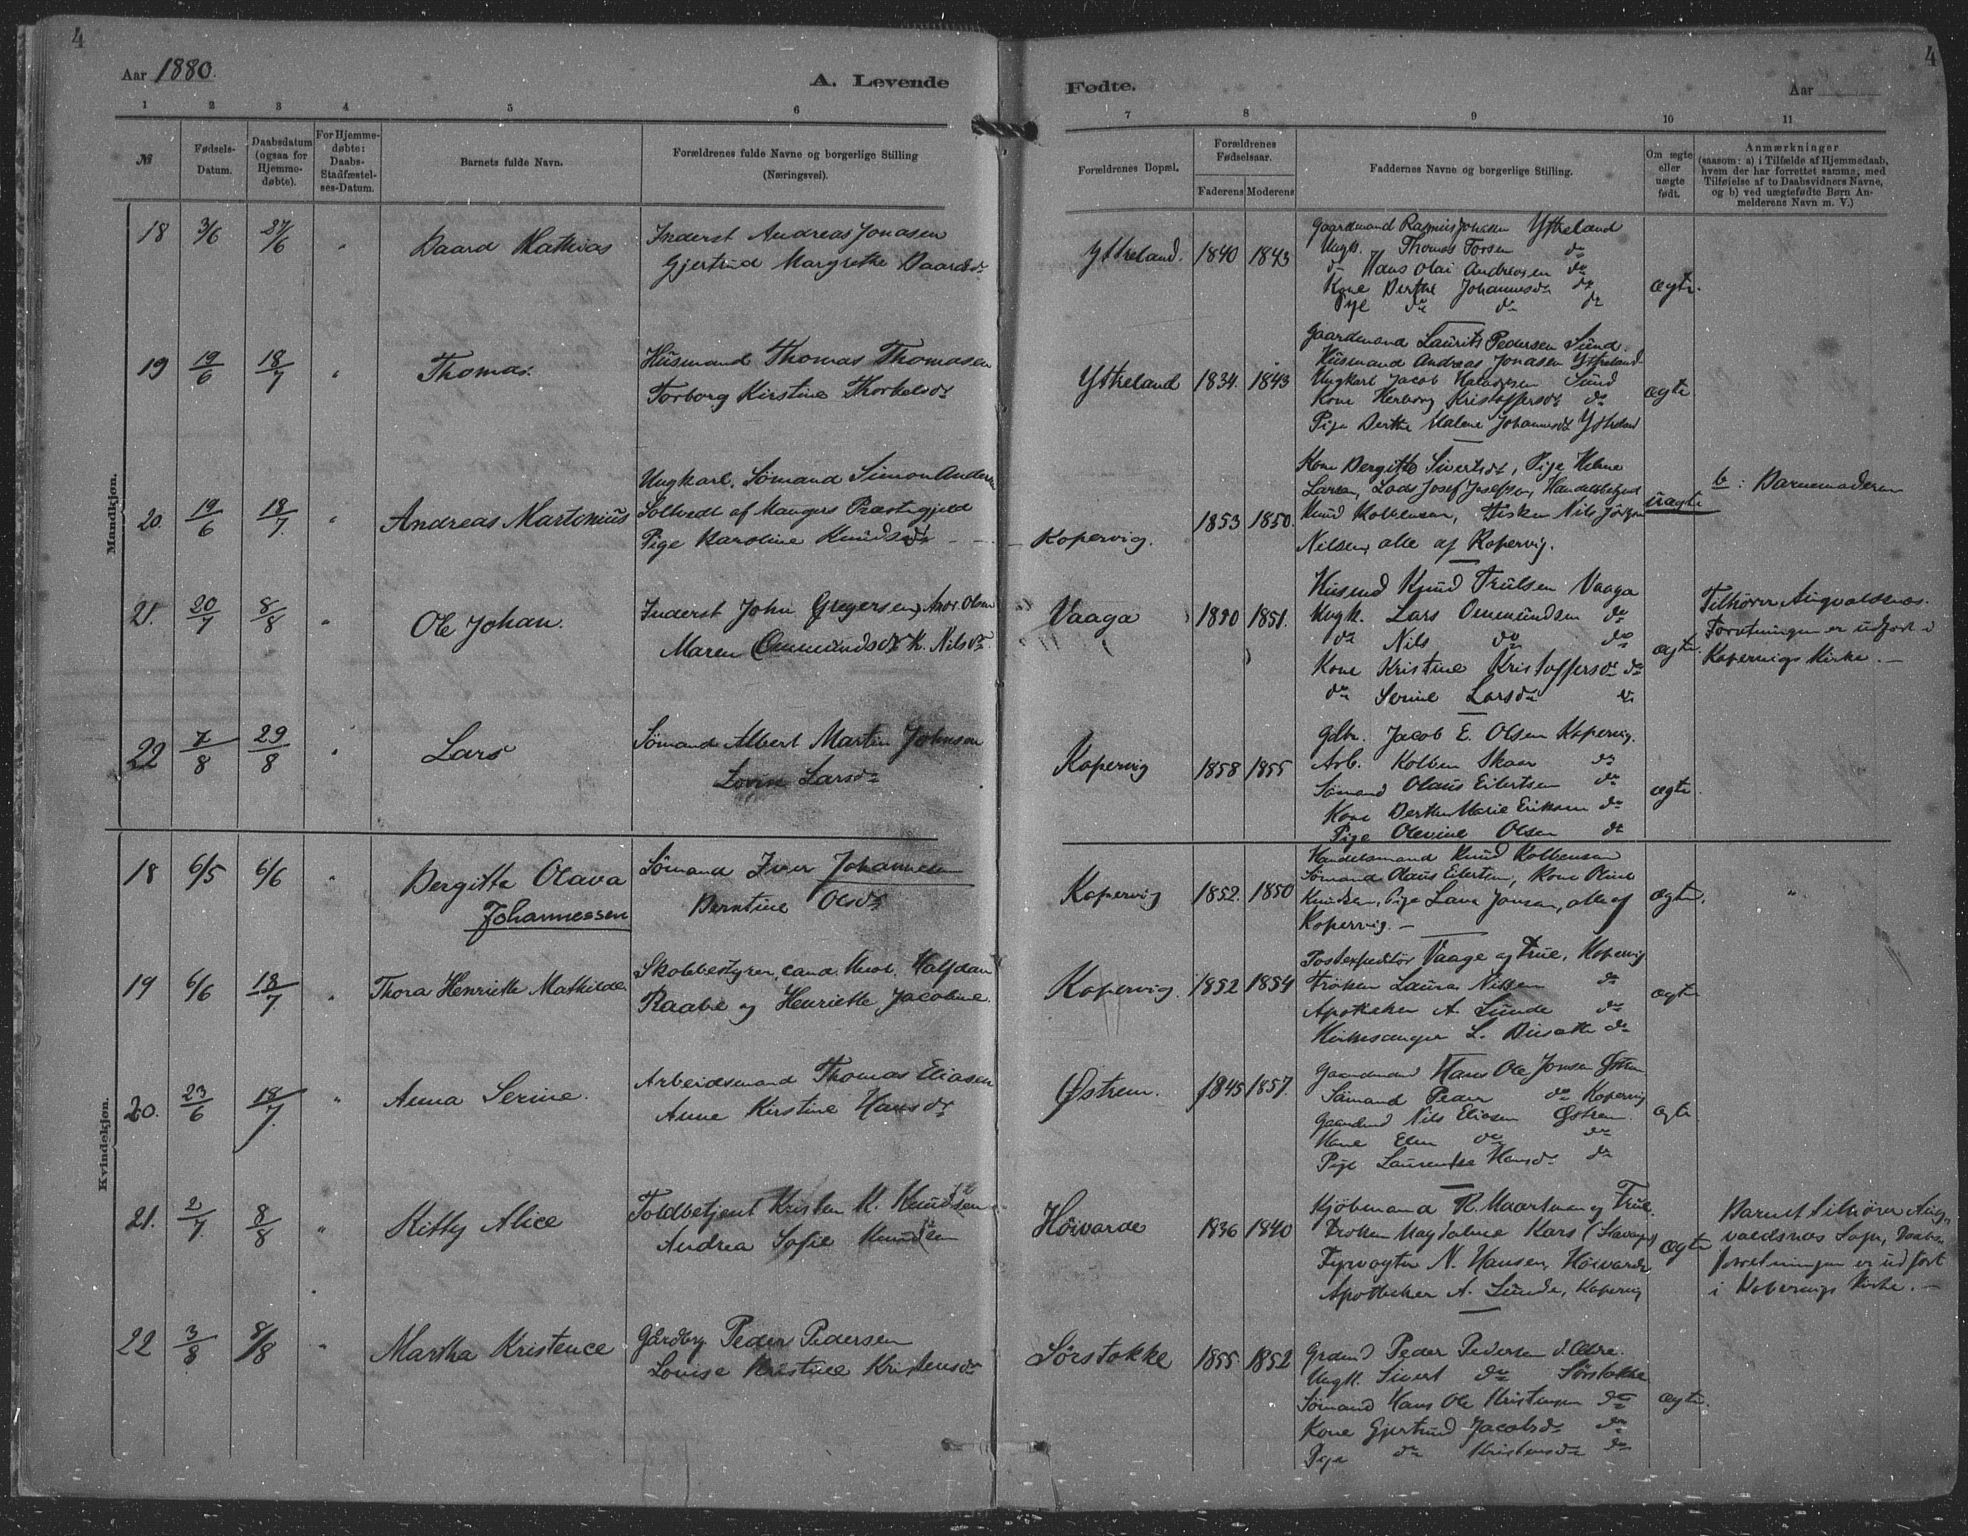 4
Aar 1880.
A. Levende
Fødte.
Aar
4
1 2 3 4 5 6 7 8 9 10 11
№
Fødsels-
Datum.
Daabsdatum
(ogsaa for
Hjemme-
døbte).
For Hjemme-
døbte:
Daabs-
Stadfæstel-
ses-Datum.
Barnets fulde Navn.
Forældrenes fulde Navne og borgerlige Stilling
(Næringsvei).
Forældrenes Bopæl.
Forældrenes
Fødselsaar.
Faderens Moderens
Faddernes Navne og borgerlige Stilling.
Om ægte
eller
uægte
født.
Anmærkninger
(saasom: a) i Tilfælde af Hjemmedaab,
hvem der har forrettet samme, med
Tilføielse af to Daabsvidners Navne,
og b) ved uægtefødte Børn An-
melderens Navn m. V.)
Mandkjøn.
18 3/6 27/6 " Baard Mathias
Inderst Andreas Jonasen
Gjertrud Margrethe Baardsdr
Ytreland. 1840 1843
Gaardmand Rasmus Johnsen Ytreland
Ungk. Thomas Torsen do
do Hans Olai Andreasen do
Kone Berthe Johannesdr do
Pige do do do
ægte.
19 19/6 18/7 " Thomas.
Husmand Thomas Thomasen
Torborg Kirstine Thorkelsdr
Ytreland 1834. 1843
Gaardmand Laurits Pedersen Sund.
Husmand Andreas Jonasen Ytreland
Ungkarl Jacob Sund
Kone Herborg Kristoffersdr do
Pige Berthe Malene Johannesdr Ytreland
ægte
20. 19/6 18/7. " Andreas Martinius
Ungkarl, Sømand Simon Anders
Soltvedt af Mangers Præstegjeld
Pige Karoline Knudsdr
Kopervig. 1853 1850.
Kone Bergitte Sivertsdr, Pige Helene
Larsen, Lods Josef Josefsen, Handelsbetjent
Knud Kolbensen, Fisker Nils Jørgen
Nilsen, alle af Kopervig.
uægte
b: Barnemoderen
21. 20/7 8/8 " Ole Johan.
Inderst John Gregersen, Olsen
Maren Ommundsdr K. Nilsdr.
Vaaga 1851.
Husmd Knud Trulsen Vaaga
Ungk. Lars Ommundsen do
do Nils do do
Kone Kristine Kristoffersdr do
do Serine Larsdr do
ægte.
Tilhører Augvaldsnes.
Forretningen er udført i
Kopervigs Kirke. —
22 7/8 29/8 " Lars
Sømand Albert Martin Johnsen
Lovise Larsdr
Kopervig 1858 1855
Gdbr. Jacob E. Olsen Kopervig.
Arb. Kolben Skaar do
Sømand Olaus Eilertsen do
Kone Berthe Marie Eriksen do
Pige Olevine Olsen do
ægte
Kvindekjøn.
18 6/5 6/6 " Bergitte Olava
Johannessen
Sømand Iver Johannesen
Berntine Olsdr
Kopervig 1852. 1850
Handelsmand Knud Kolbensen
Sømand Olaus Eilertsen, Kone Oline
Knudsen, Pige Lava Jonsen, alle af
Kopervig. —
ægte.
"
19 6/6 18/7. " Thora Henriette Mathilde
Skolebestyrer, cand. theol. Halfdan
Raabe og Henriette Jacobine
Kopervig. 1852 1854
Postexpeditør Vaage og Frue, Kopervig
Frøken Laura Nissen do
Apotheker A. Lunde do
Kirkesanger L. do
ægte
20. 23/6 18/7. " Anna Serine.
Arbeidsmand Thomas Eliasen
Anne Kirstine Hansdr
Østrem. 1845 1857.
Gaardmand Hans Ole Jonsen Østrem
Sømand Peder do Kopervig
Gaardmd Nils Eliasen Østrem.
Kone Elen do do
Pige Laurentse Hansdr do
ægte.
21. 2/7. 8/8 " Kitty Alice
Toldbetjent Kristen M. Knudsen
Andrea Sofie Knudsen
Høivarde 1836 1840
Kjøbmand R. Maartman og Frue.
Frøken Magdalene Kars (Stavanger)
Fyrvogter N. Hansen, Høivarde
Apotheker A. Lunde, Kopervig
ægte
Barnet tilhører Aug-
valdsnes Sogn, Daabs-
forretningen er udført
i Kopervigs Kirke. —
22 3/8 8/8 " Martha Kristence
Gårdbrg Peder Pedersen
Lovise Kristine Kristensdr
Sørstokke 1855 1852
Grdmd Peder Pedersen d. Ældre.
Ungk. Sivert do Sørstokke
Sømand Hans Ole Kristensen do
Kone Gjertrud Jacobsdr do
Pige do Kristensdr do
ægte.